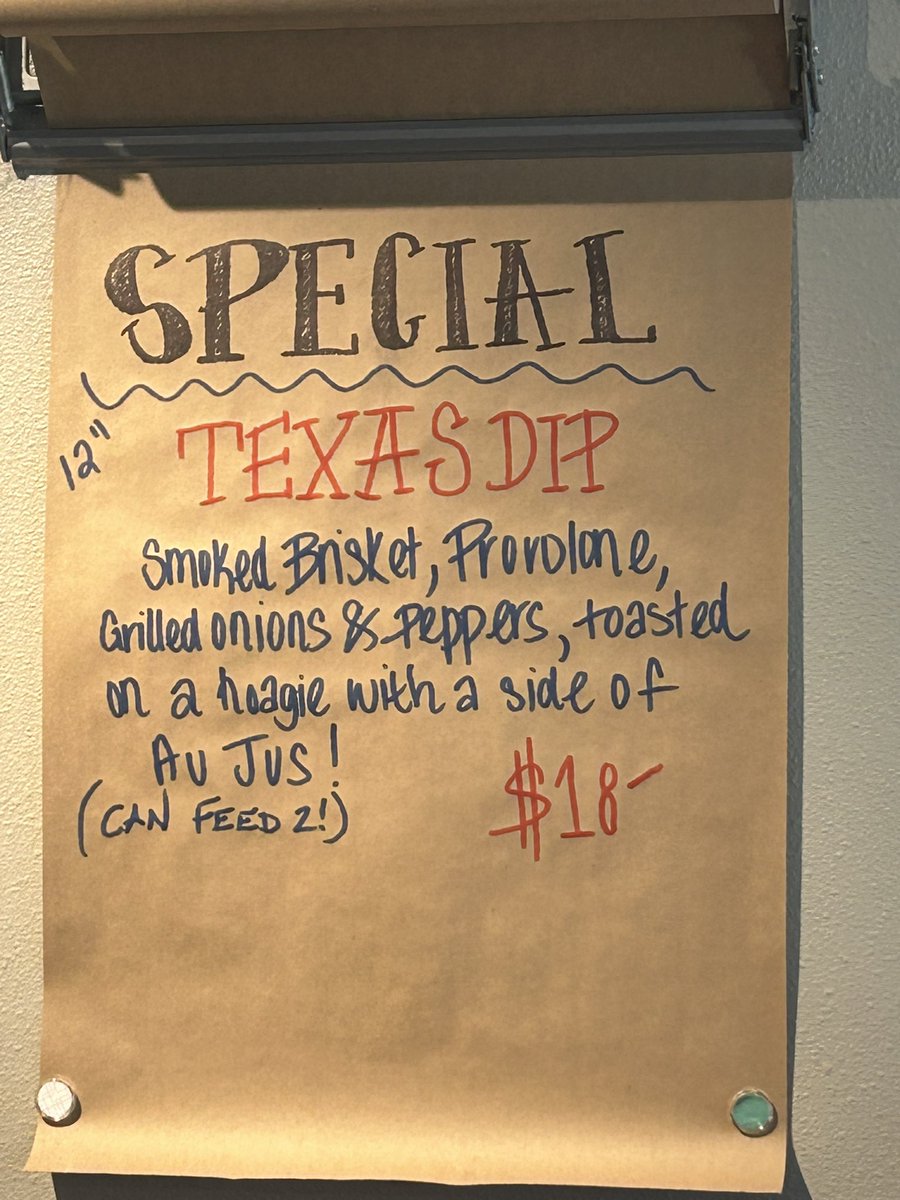 SPECIAL
12"
TEXAS DIP
Smoked Brisket, Provolone,
Grilled onions & Peppers, toasted
on a hoagie with a side of
Au Jus!
(CAN FEED 2!)
$18-